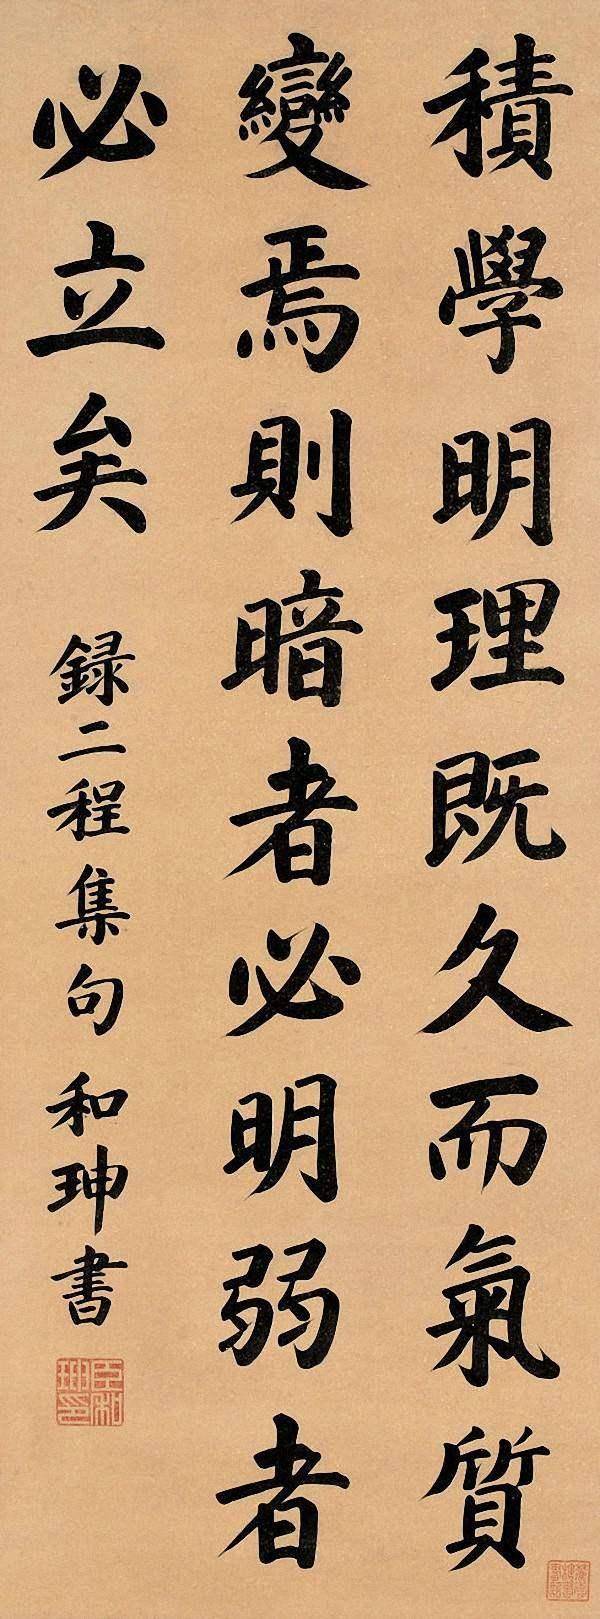 積學明理既久而氣質
變焉則暗者必明弱者
必立矣
録二程集句 和珅書
臣和
珅印